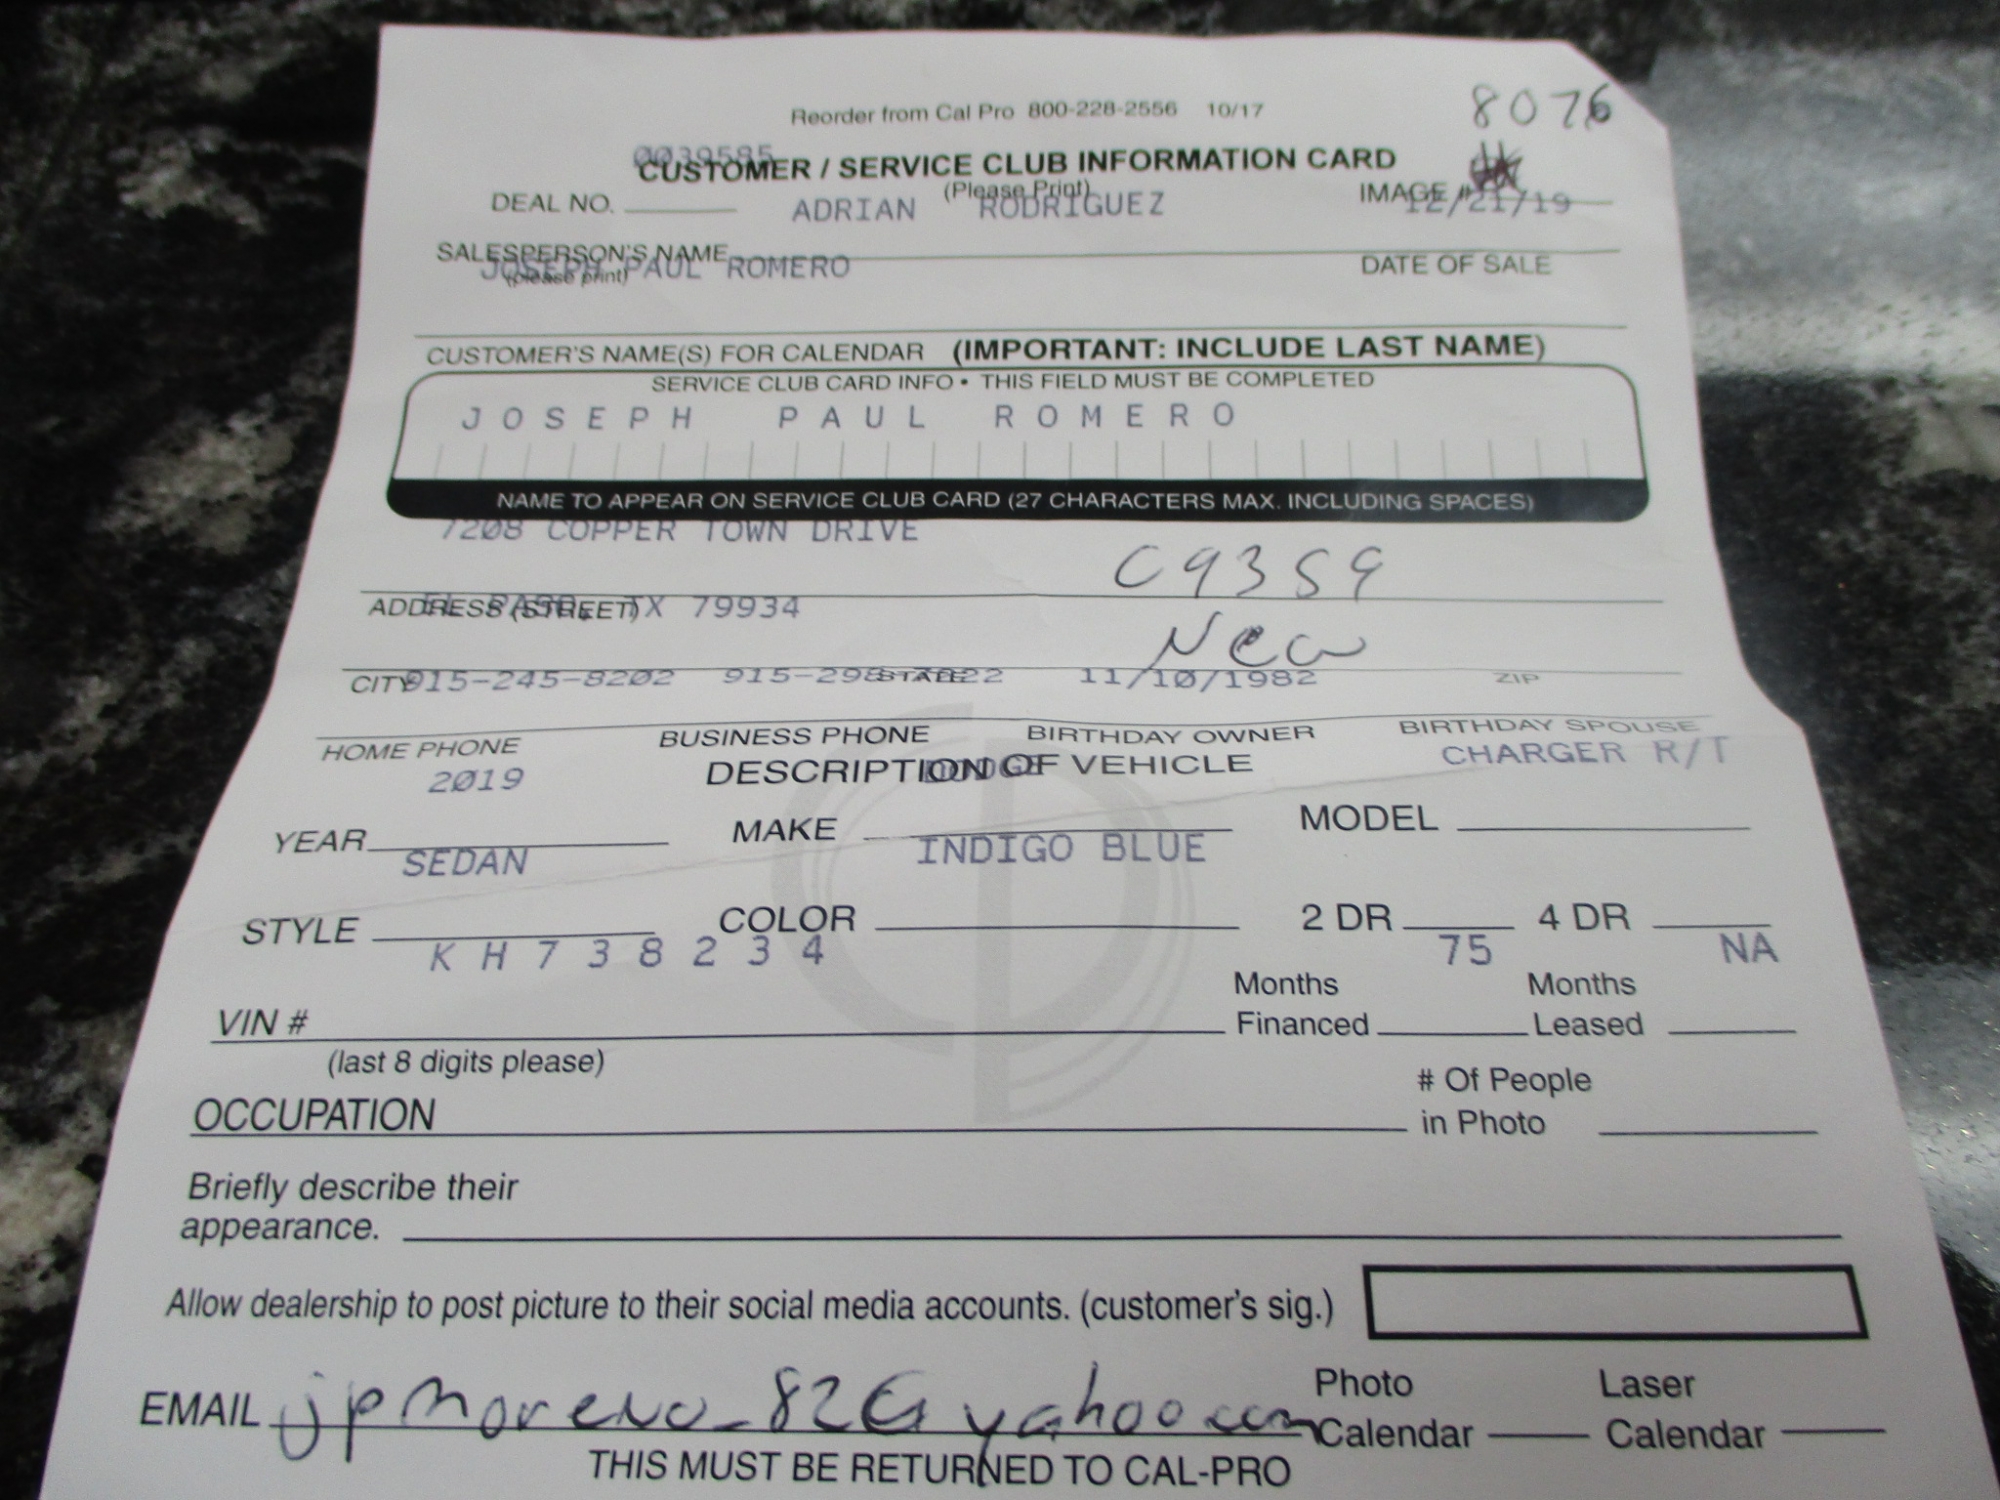 Reorder from Cal Pro 800-228-2556 10/17
8076
0039585
CUSTOMER / SERVICE CLUB INFORMATION CARD
(Please Print)
DEAL NO. ADRIAN RODRIGUEZ IMAGE # 12/21/19
SALESPERSON'S NAME DATE OF SALE
(please print)
JOSEPH PAUL ROMERO
CUSTOMER'S NAME(S) FOR CALENDAR (IMPORTANT: INCLUDE LAST NAME)
SERVICE CLUB CARD INFO • THIS FIELD MUST BE COMPLETED
JOSEPH PAUL ROMERO
NAME TO APPEAR ON SERVICE CLUB CARD (27 CHARACTERS MAX. INCLUDING SPACES)
7208 COPPER TOWN DRIVE
C9359
ADDRESS (STREET)
EL PASO, TX 79934
New
CITY STATE ZIP
915-245-8202 915-298-7822 11/10/1982
HOME PHONE BUSINESS PHONE BIRTHDAY OWNER BIRTHDAY SPOUSE
DESCRIPTION OF VEHICLE
2019 DODGE CHARGER R/T
YEAR MAKE MODEL
SEDAN INDIGO BLUE
STYLE COLOR 2 DR 4 DR
KH738234 75 NA
VIN # Months Financed Months Leased
(last 8 digits please)
OCCUPATION # Of People in Photo
Briefly describe their
appearance.
Allow dealership to post picture to their social media accounts. (customer's sig.)
EMAIL jpmoreno_82@yahoo.com Photo Calendar Laser Calendar
THIS MUST BE RETURNED TO CAL-PRO